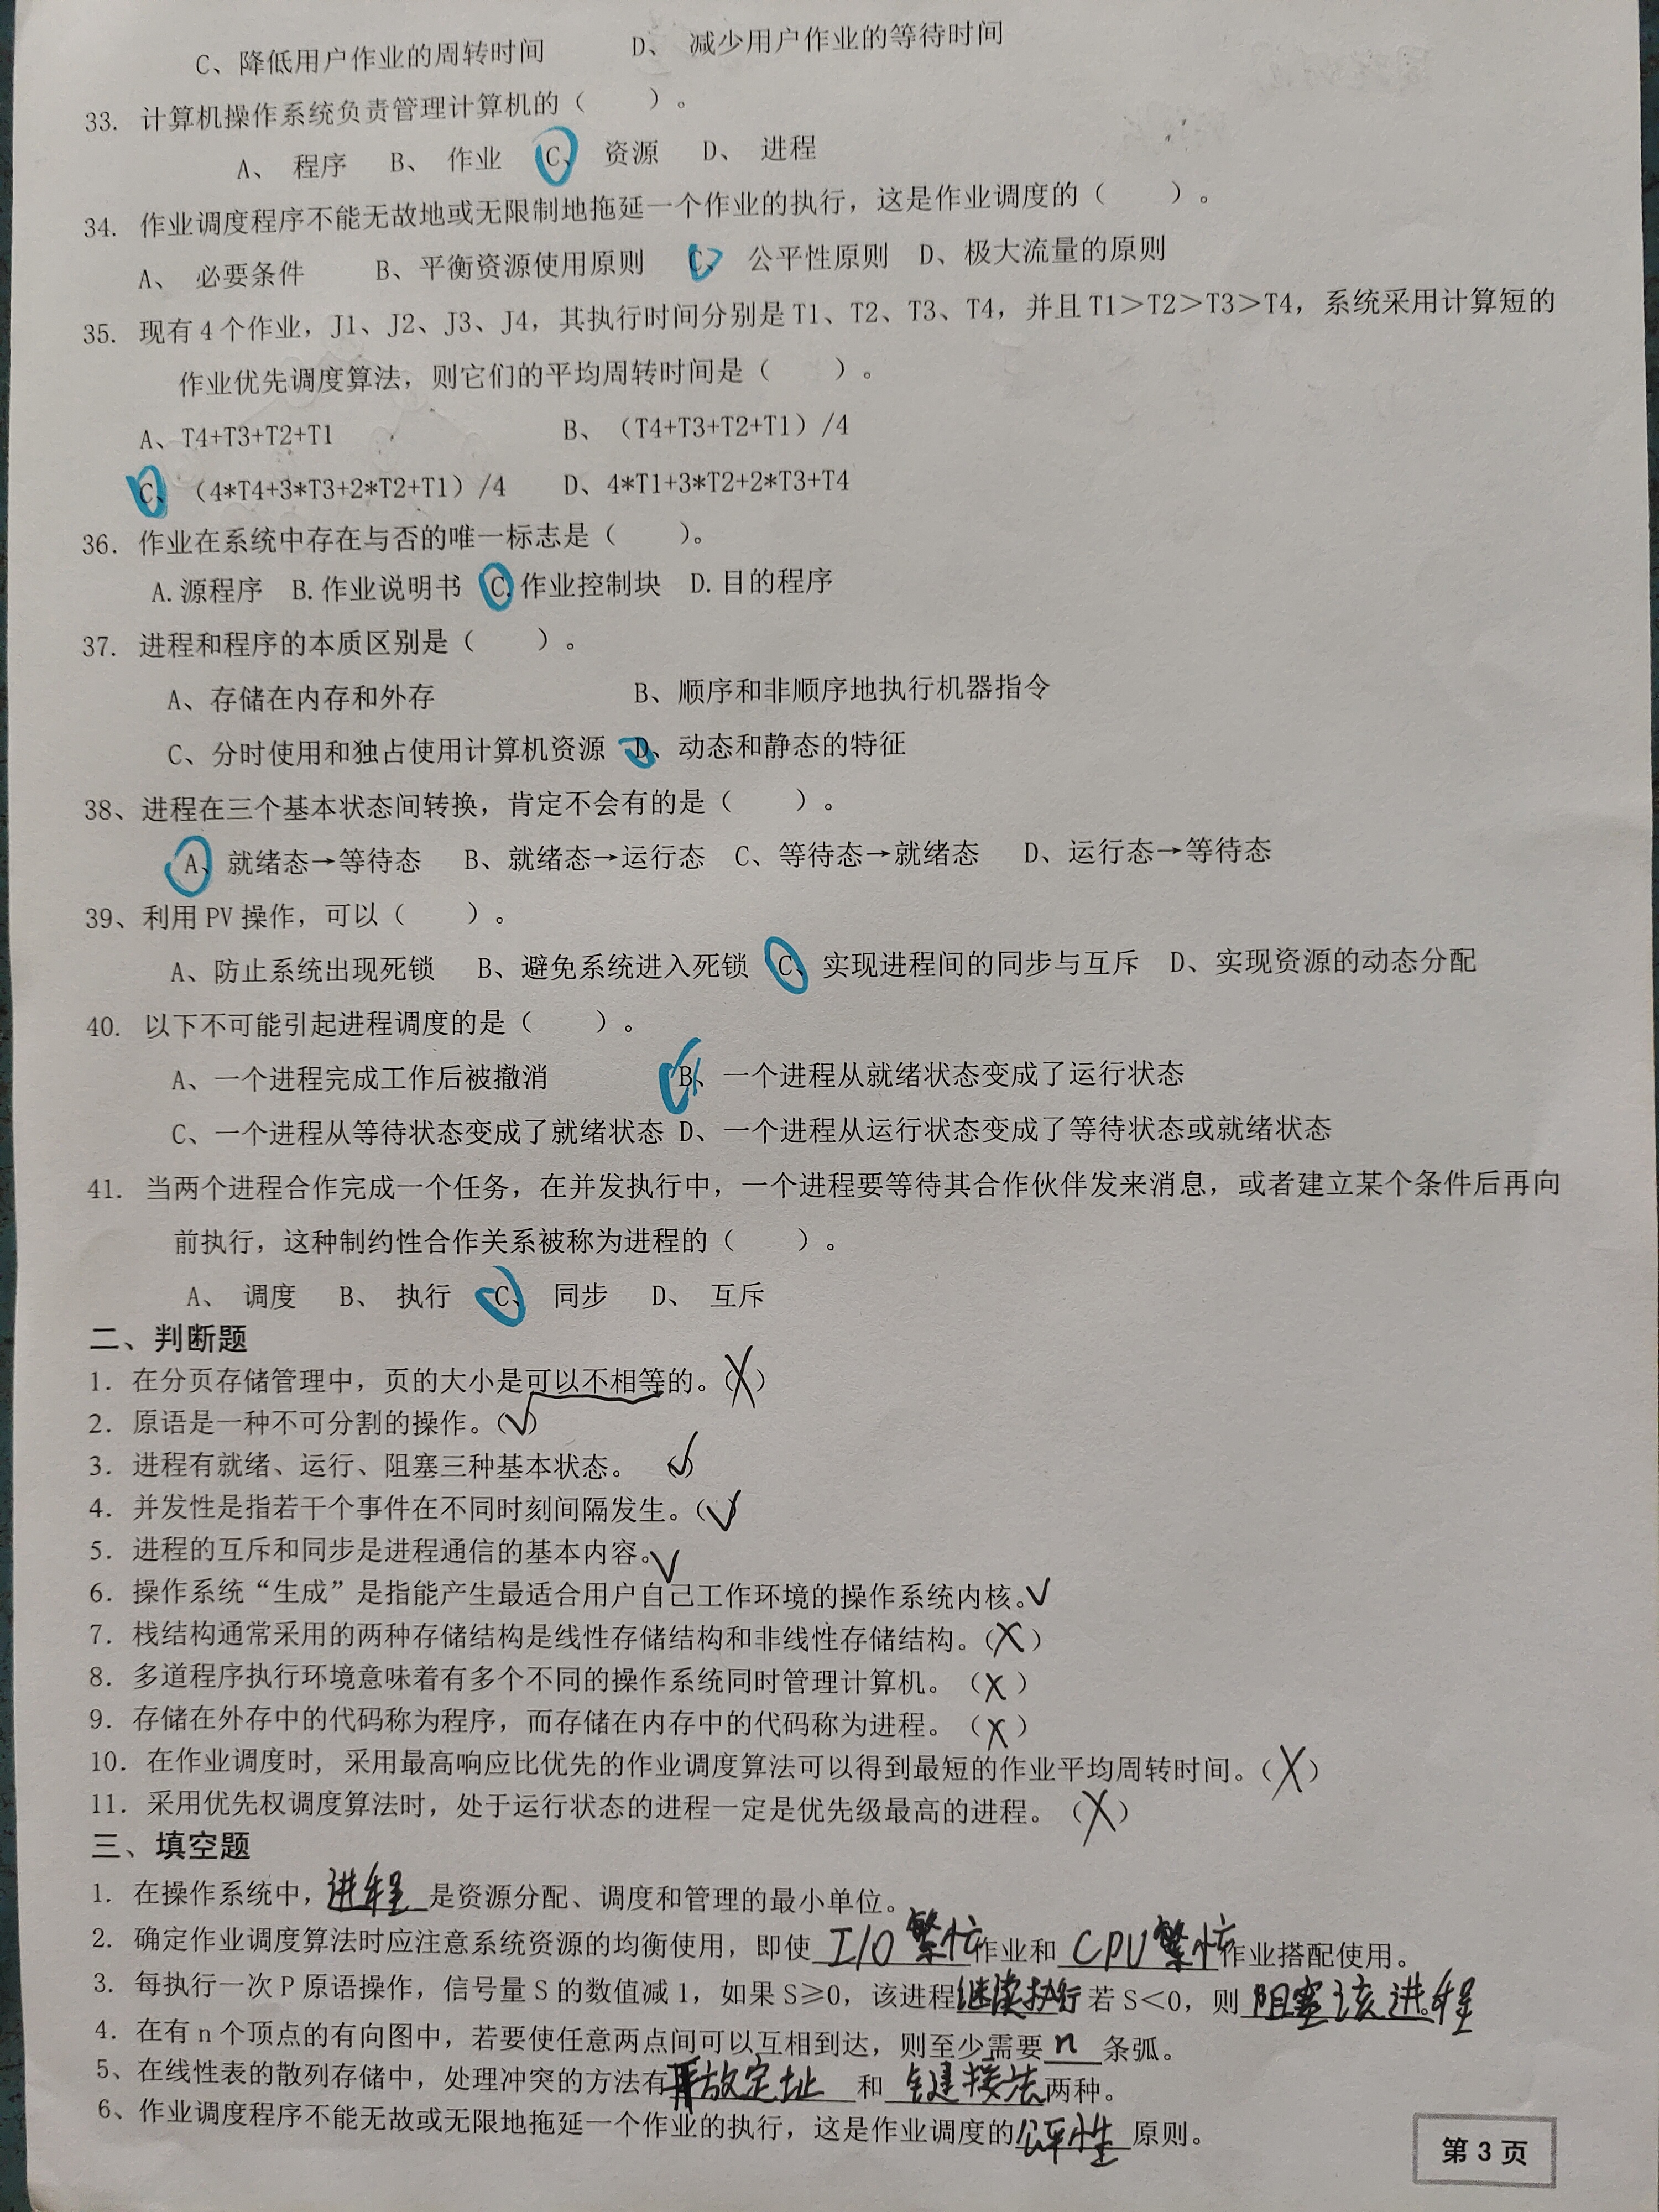 C、降低用户作业的周转时间 D、 减少用户作业的等待时间
33. 计算机操作系统负责管理计算机的（ ）。
A、 程序 B、 作业 C、 资源 D、 进程
34. 作业调度程序不能无故地或无限制地拖延一个作业的执行，这是作业调度的（ ）。
A、 必要条件 B、平衡资源使用原则 C、 公平性原则 D、极大流量的原则
35. 现有4个作业，J1、J2、J3、J4，其执行时间分别是T1、T2、T3、T4，并且T1＞T2＞T3＞T4，系统采用计算短的
作业优先调度算法，则它们的平均周转时间是（ ）。
A、T4+T3+T2+T1 B、（T4+T3+T2+T1）/4
C、（4*T4+3*T3+2*T2+T1）/4 D、4*T1+3*T2+2*T3+T4
36. 作业在系统中存在与否的唯一标志是（ ）。
A.源程序 B.作业说明书 C.作业控制块 D.目的程序
37. 进程和程序的本质区别是（ ）。
A、存储在内存和外存 B、顺序和非顺序地执行机器指令
C、分时使用和独占使用计算机资源 D、动态和静态的特征
38、进程在三个基本状态间转换，肯定不会有的是（ ）。
A、就绪态→等待态 B、就绪态→运行态 C、等待态→就绪态 D、运行态→等待态
39、利用PV操作，可以（ ）。
A、防止系统出现死锁 B、避免系统进入死锁 C、实现进程间的同步与互斥 D、实现资源的动态分配
40. 以下不可能引起进程调度的是（ ）。
A、一个进程完成工作后被撤消 B、一个进程从就绪状态变成了运行状态
C、一个进程从等待状态变成了就绪状态 D、一个进程从运行状态变成了等待状态或就绪状态
41. 当两个进程合作完成一个任务，在并发执行中，一个进程要等待其合作伙伴发来消息，或者建立某个条件后再向
前执行，这种制约性合作关系被称为进程的（ ）。
A、 调度 B、 执行 C、 同步 D、 互斥
二、判断题
1. 在分页存储管理中，页的大小是可以不相等的。（X）
2. 原语是一种不可分割的操作。（√）
3. 进程有就绪、运行、阻塞三种基本状态。 √
4. 并发性是指若干个事件在不同时刻间隔发生。（√）
5. 进程的互斥和同步是进程通信的基本内容。√
6. 操作系统“生成”是指能产生最适合用户自己工作环境的操作系统内核。√
7. 栈结构通常采用的两种存储结构是线性存储结构和非线性存储结构。（X）
8. 多道程序执行环境意味着有多个不同的操作系统同时管理计算机。（X）
9. 存储在外存中的代码称为程序，而存储在内存中的代码称为进程。（X）
10. 在作业调度时, 采用最高响应比优先的作业调度算法可以得到最短的作业平均周转时间。（X）
11. 采用优先权调度算法时，处于运行状态的进程一定是优先级最高的进程。（X）
三、填空题
1. 在操作系统中，进程是资源分配、调度和管理的最小单位。
2. 确定作业调度算法时应注意系统资源的均衡使用，即使 I/O繁忙作业和 CPU繁忙作业搭配使用。
3. 每执行一次P原语操作，信号量S的数值减1，如果S≥0，该进程继续执行若S＜0，则 阻塞该进程
4. 在有n个顶点的有向图中，若要使任意两点间可以互相到达，则至少需要 n 条弧。
5、在线性表的散列存储中，处理冲突的方法有开放定址 和 链接法两种。
6、作业调度程序不能无故或无限地拖延一个作业的执行，这是作业调度的公平性原则。
第3页